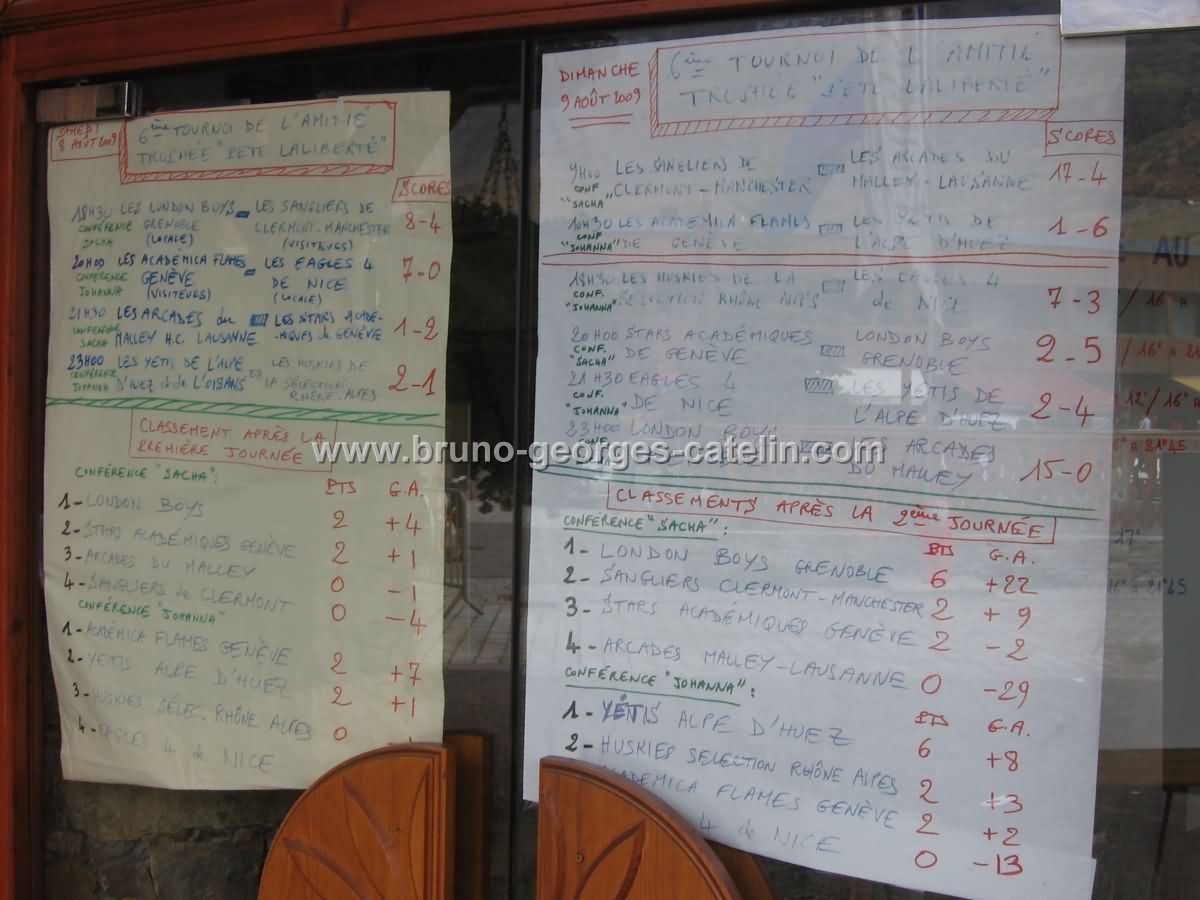 SAMEDI
8 AOÛT 2009
6ème TOURNOI DE L'AMITIÉ
TROPHÉE "PETE LALIBERTÉ"
SCORES
18H30 LES LONDON BOYS - LES SANGLIERS DE
CONFÉRENCE GRENOBLE CLERMONT-MANCHESTER 8-4
SACHA (LOCALE) (VISITEURS)
20H00 LES ACADEMICA FLAMES - LES EAGLES 4
CONFÉRENCE GENÈVE DE NICE 7-0
JOHANNA (VISITEURS) (LOCALE)
21H30 LES ARCADES du LES STARS ACADÉ-
CONFÉRENCE SACHA MALLEY H.C. LAUSANNE -MIQUES de GENÈVE 1-2
23H00 LES YETIS DE L'ALPE LES HUSKIES DE
CONFÉRENCE JOHANNA D'HUEZ & de L'OISANS LA SÉLECTION 2-1
RHÔNE-ALPES
CLASSEMENT APRÈS LA
PREMIÈRE JOURNÉE
CONFÉRENCE "SACHA":
PTS G.A.
1-LONDON BOYS 2 +4
2-STARS ACADÉMIQUES GENÈVE 2 +1
3-ARCADES DU MALLEY 0 -1
4-SANGLIERS de CLERMONT 0 -4
CONFÉRENCE "JOHANNA"
1-ACADÉMICA FLAMES GENÈVE 2 +7
2-YETIS ALPE D'HUEZ 2 +1
3-HUSKIES SÉLEC. RHÔNE ALPES 0
4-EAGLES 4 de NICE
DIMANCHE
9 AOÛT 2009
6ème TOURNOI DE L'AMITIÉ
TROPHÉE "PETE LALIBERTÉ"
SCORES
9H00 LES SANGLIERS DE LES ARCADES DU
CONF. "SACHA" CLERMONT-MANCHESTER MALLEY-LAUSANNE 17-4
10H30 LES ACADEMICA FLAMES LES YETIS DE
CONF. "JOHANNA" DE GENÈVE L'ALPE D'HUEZ 1-6
18H30 LES HUSKIES DE LA LES EAGLES 4
CONF. "JOHANNA" SÉLECTION RHÔNE ALPES de NICE 7-3
20H00 STARS ACADÉMIQUES LONDON BOYS
CONF. "SACHA" DE GENÈVE GRENOBLE 2-5
21H30 EAGLES 4 LES YETIS DE
CONF. "JOHANNA" DE NICE L'ALPE D'HUEZ 2-4
23H00 LONDON BOYS LES ARCADES
CONF. DU MALLEY 15-0
www.bruno-georges-catelin.com
CLASSEMENTS APRÈS LA 2ème JOURNÉE
CONFÉRENCE "SACHA":
PTS G.A.
1- LONDON BOYS GRENOBLE 6 +22
2- SANGLIERS CLERMONT-MANCHESTER 2 +9
3- STARS ACADÉMIQUES GENÈVE 2 -2
4- ARCADES MALLEY-LAUSANNE 0 -29
CONFÉRENCE "JOHANNA":
PTS G.A.
1- YÉTIS ALPE D'HUEZ 6 +8
2- HUSKIES SELECTION RHÔNE ALPES 2 +3
ACADEMICA FLAMES GENÈVE 2 +2
4 de NICE 0 -13